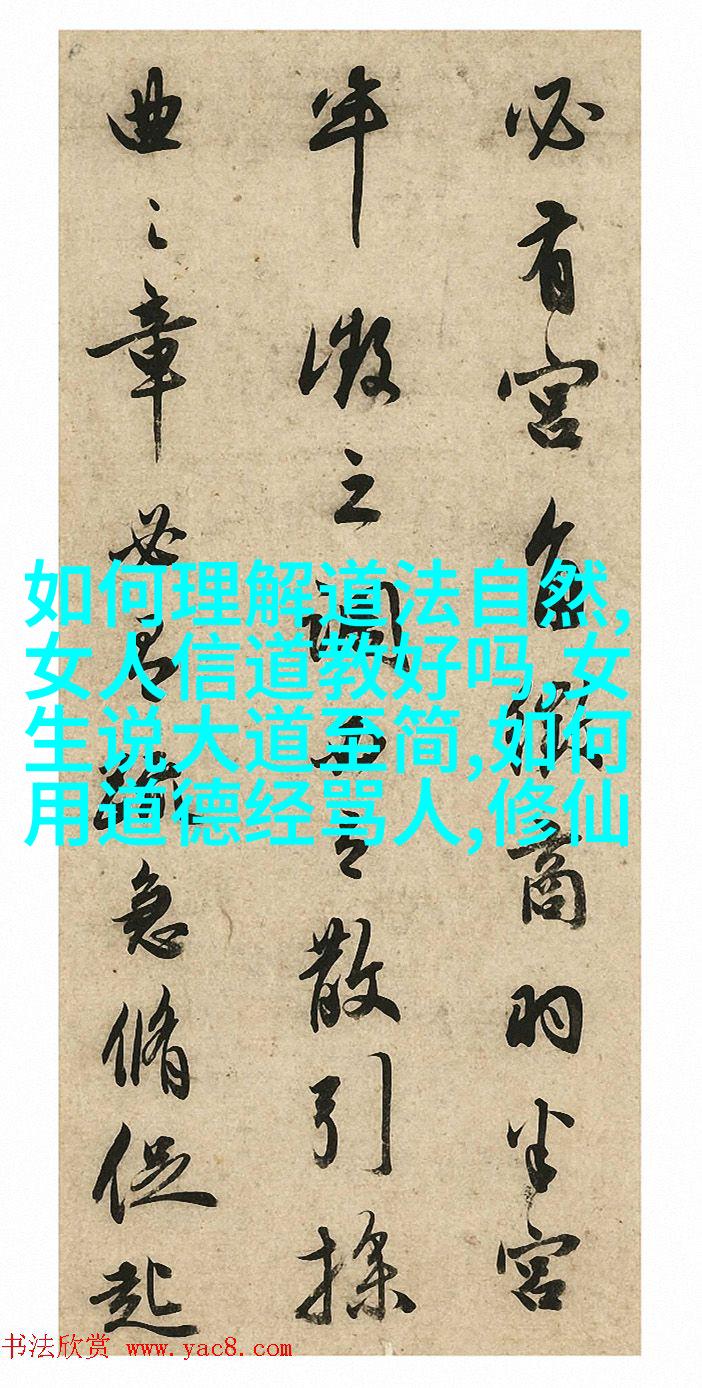 必有宫徵商羽半宫
半徵之調之散引操
曲之章必有急脩促起
如何理解道法自然,
女人信道教好吗,女
生说大道至简,如何
用道德经骂人,修仙
书法欣赏 www.yac8.com